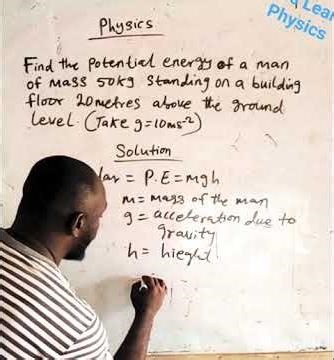 Lear
Physics
Physics
Find the Potential energy of a man
of mass 50kg standing on a building
floor 20metres above the ground
level. (Take g=10ms⁻²)
Solution
= P.E = mgh
m = mass of the man
g = acceleration due to
gravity
h = hieght